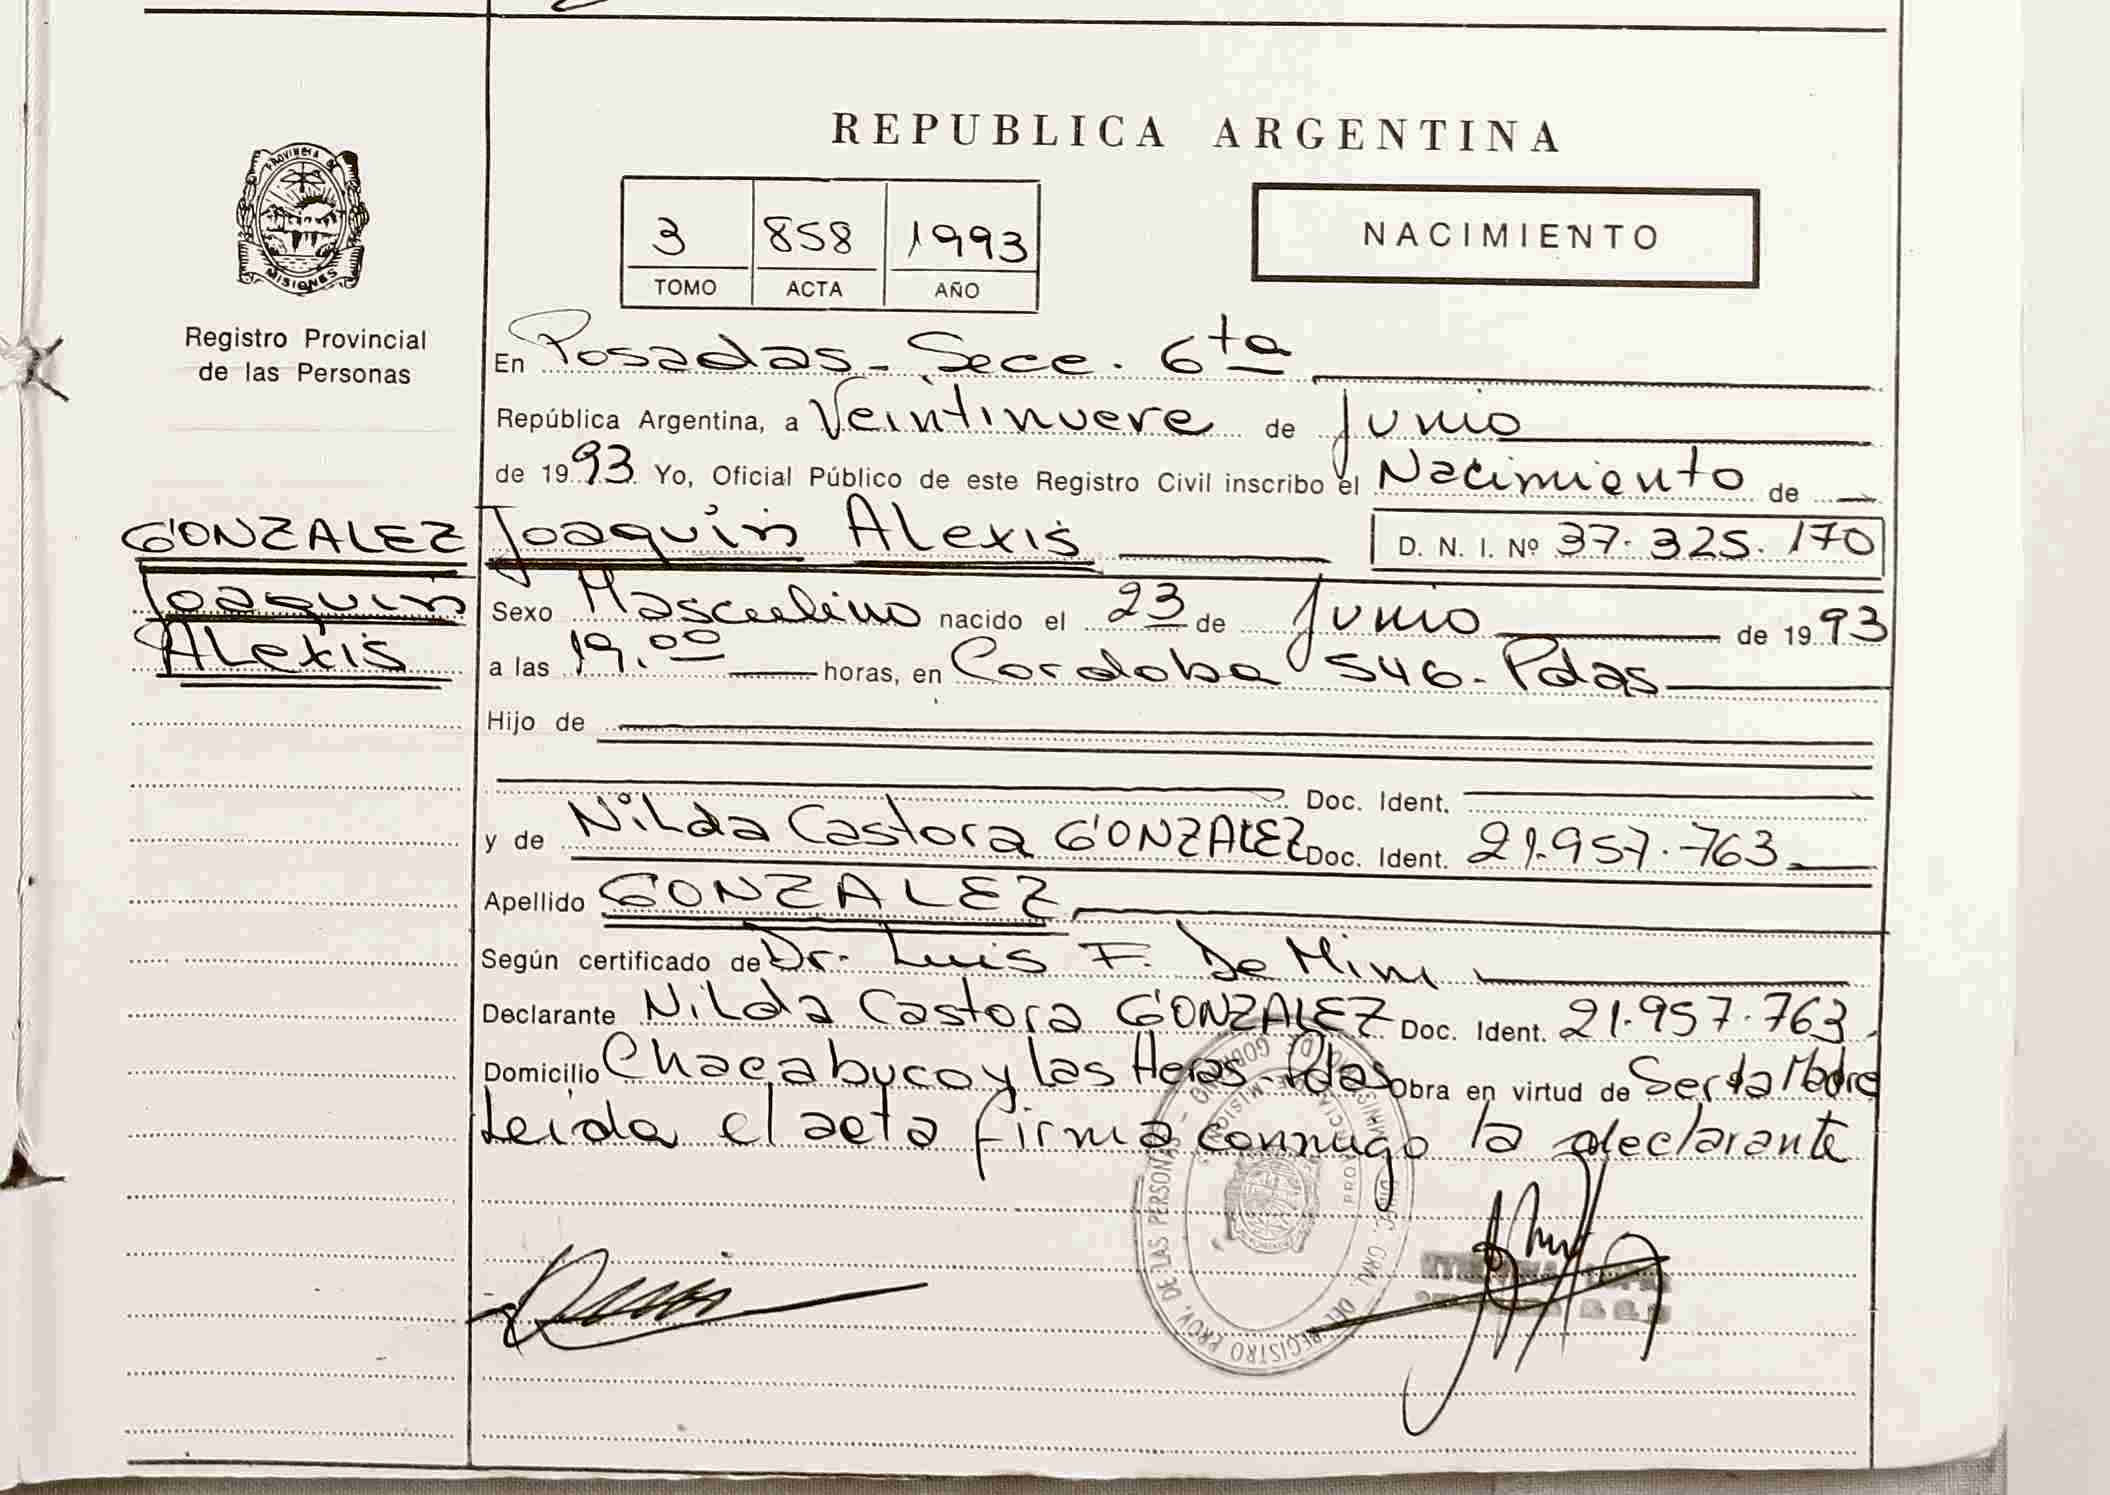 REPUBLICA ARGENTINA
PROVINCIA DE
MISIONES
Registro Provincial
de las Personas
3 858 1993
TOMO ACTA AÑO
NACIMIENTO
En Posadas - Secc. 6ta
República Argentina, a Veintinueve de Junio
de 1993 Yo, Oficial Público de este Registro Civil inscribo el Nacimiento de
GONZALEZ
Joaquin
Alexis
Joaquin Alexis D. N. I. Nº 37.325.170
Sexo Masculino nacido el 23 de Junio de 1993
a las 19.00 horas, en Cordoba 546. Pdas
Hijo de
Doc. Ident.
y de Nilda Castora GONZALEZ Doc. Ident. 21.957.763
Apellido GONZALEZ
Según certificado de Dr. Luis F. De Mim
Declarante Nilda Castora GONZALEZ Doc. Ident. 21.957.763.
Domicilio Chacabuco y las Heras - Pdas Obra en virtud de Ser la Madre
Leida el acta firma conmigo la declarante